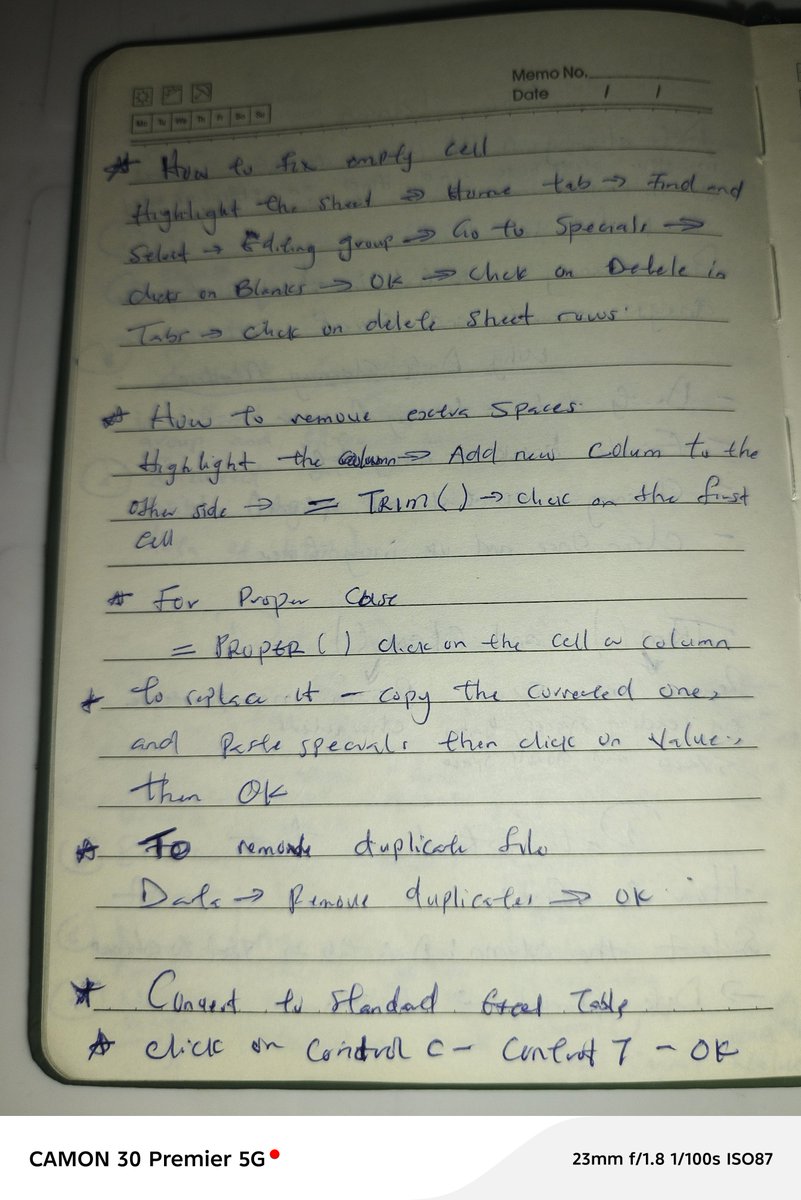 Memo No.
Date / /
Mo Tu We Th Fr Sa Su
* How to fix empty cell
Highlight the sheet → Home tab → Find and
Select → Editing group → Go to Specials →
click on Blanks → OK → Click on Delete in
Tabs → click on delete sheet rows.
* How to remove extra spaces.
Highlight the column → Add new Colum to the
other side → = TRIM() → click on the first
cell
* For Proper Case
= PROPER() click on the cell or column
* To replace it - copy the corrected one,
and Paste specials then click on Value,
then OK
* To remove duplicate file
Data → Remove duplicates → OK.
* Convert to standard Excel Table
* click on Control C - Control T - OK
CAMON 30 Premier 5G
23mm f/1.8 1/100s ISO87